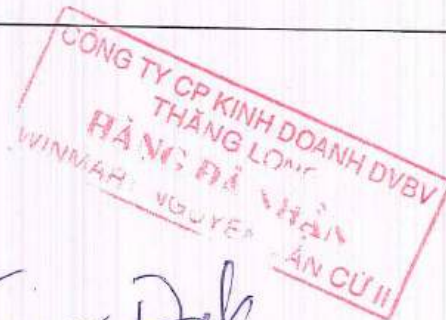 CÔNG TY CP KINH DOANH DVBV
THĂNG LONG
HÀNG ĐÃ NHẬN
WINMART NGUYỄN VĂN CỪ II